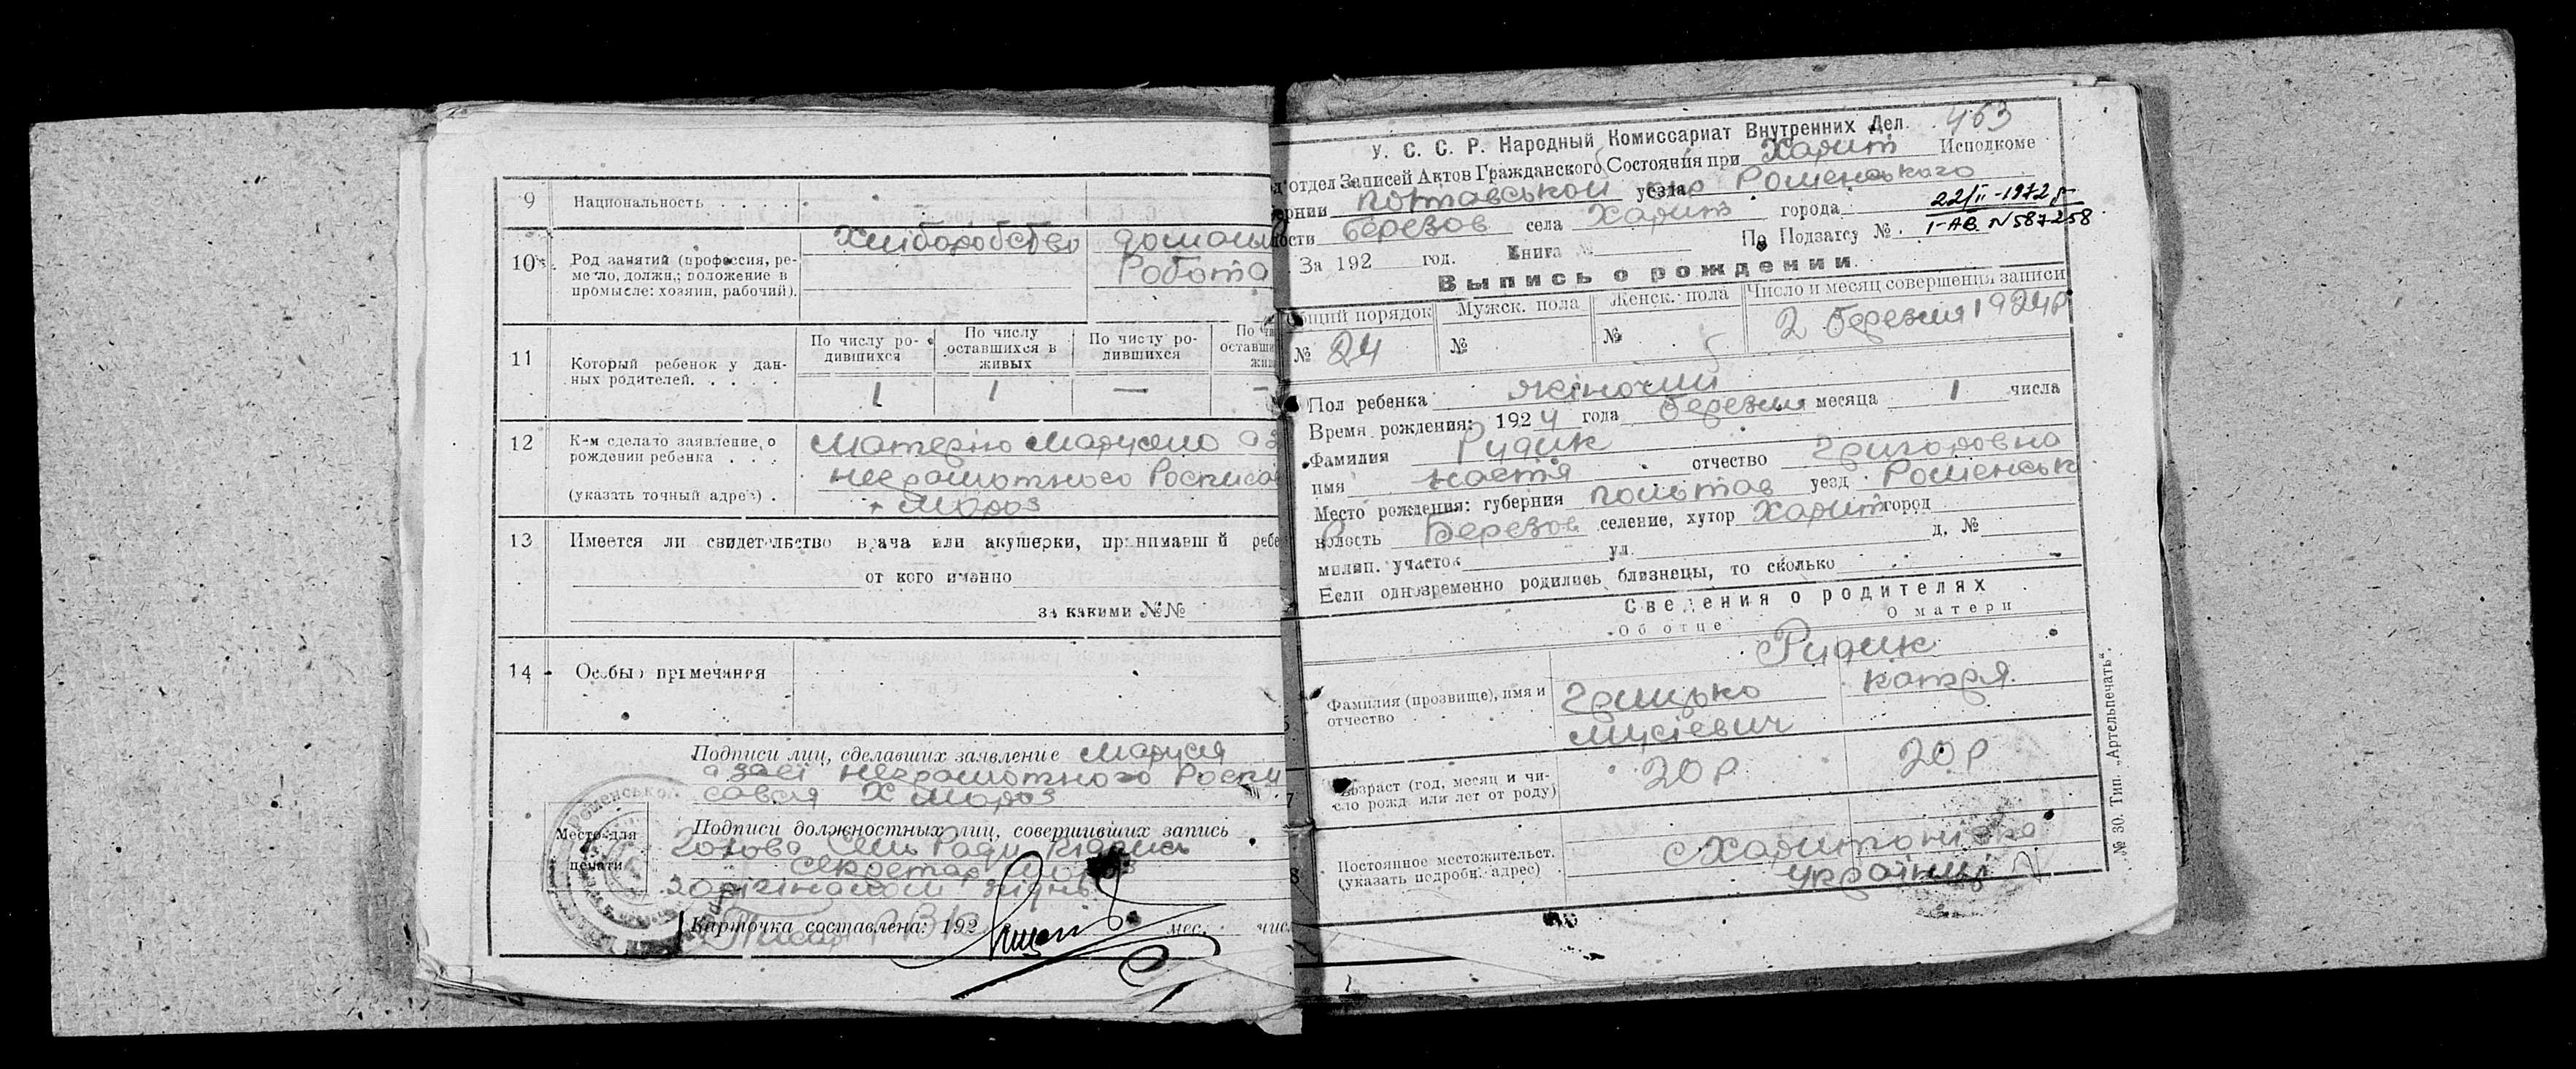 9 Национальность . . . . .
10 Род занятий (профессия, ре-
месло, должн.; положение в
промысле: хозяин, рабочий).
Хліборобство
домашн
Робота
11 Который ребенок у дан-
ных родителей. . . . .
По числу ро-
дившихся
По числу
оставшихся в
живых
По числу ро-
дившихся
По чи
оставши
жив
1 1 — —
12 Кем сделано заявление о
рождении ребенка . . .
(указать точный адрес) .
Матерію Марусею а з
неграмотного Росписа
х Мороз
13 Имеется ли свидетельство врача или акушерки, принимавшей ребе
от кого именно
за какими №№
14 Особые примечания
Подписи лиц, сделавших заявление Маруся
а заеї неграмотного Роспи
сався Х Мороз
Место для
печати
Подписи должностных лиц, совершивших запись
Голова Сіль Ради
Секретар
Зорігіналом згідно
Карточка составлена: 192 мес. чис.
463
У. С. С. Р. Народный Комиссариат Внутренних Дел.
отдел Записей Актов Гражданского Состояния при Харит Исполкоме
ернии Потавської уезда Роменського
ости Березов села Харит города
22/II-1972 р
За 192 год. Книга № По Подзагсу № I-АВ N 587258
Выпись о рождении
Общий порядок Мужск. пола Женск. пола Число и месяц совершения записи
№ 24 № № 2 березня 1924 р
Пол ребенка жіночий
Время рождения: 1924 года березня месяца 1 числа
Фамилия Рудик
имя Настя отчество Григоровна
Место рождения: губерния Польтав уезд Роменськ
волость Березов селение, хутор Харит город
милиц. участок ул. д. №
Если одновременно родились близнецы, то сколько
Сведения о родителях
Об отце О матери
Фамилия (прозвище), имя и
отчество
Рудик
Грицько Катря
Мусіевич
7 Возраст (год, месяц и чи-
сло рожд. или лет от роду)
20 р 20 р
8 Постоянное местожительст.
(указать подробн. адрес)
с Харитонівка
Українці
№ 30. Тип. „Артельпечать“.